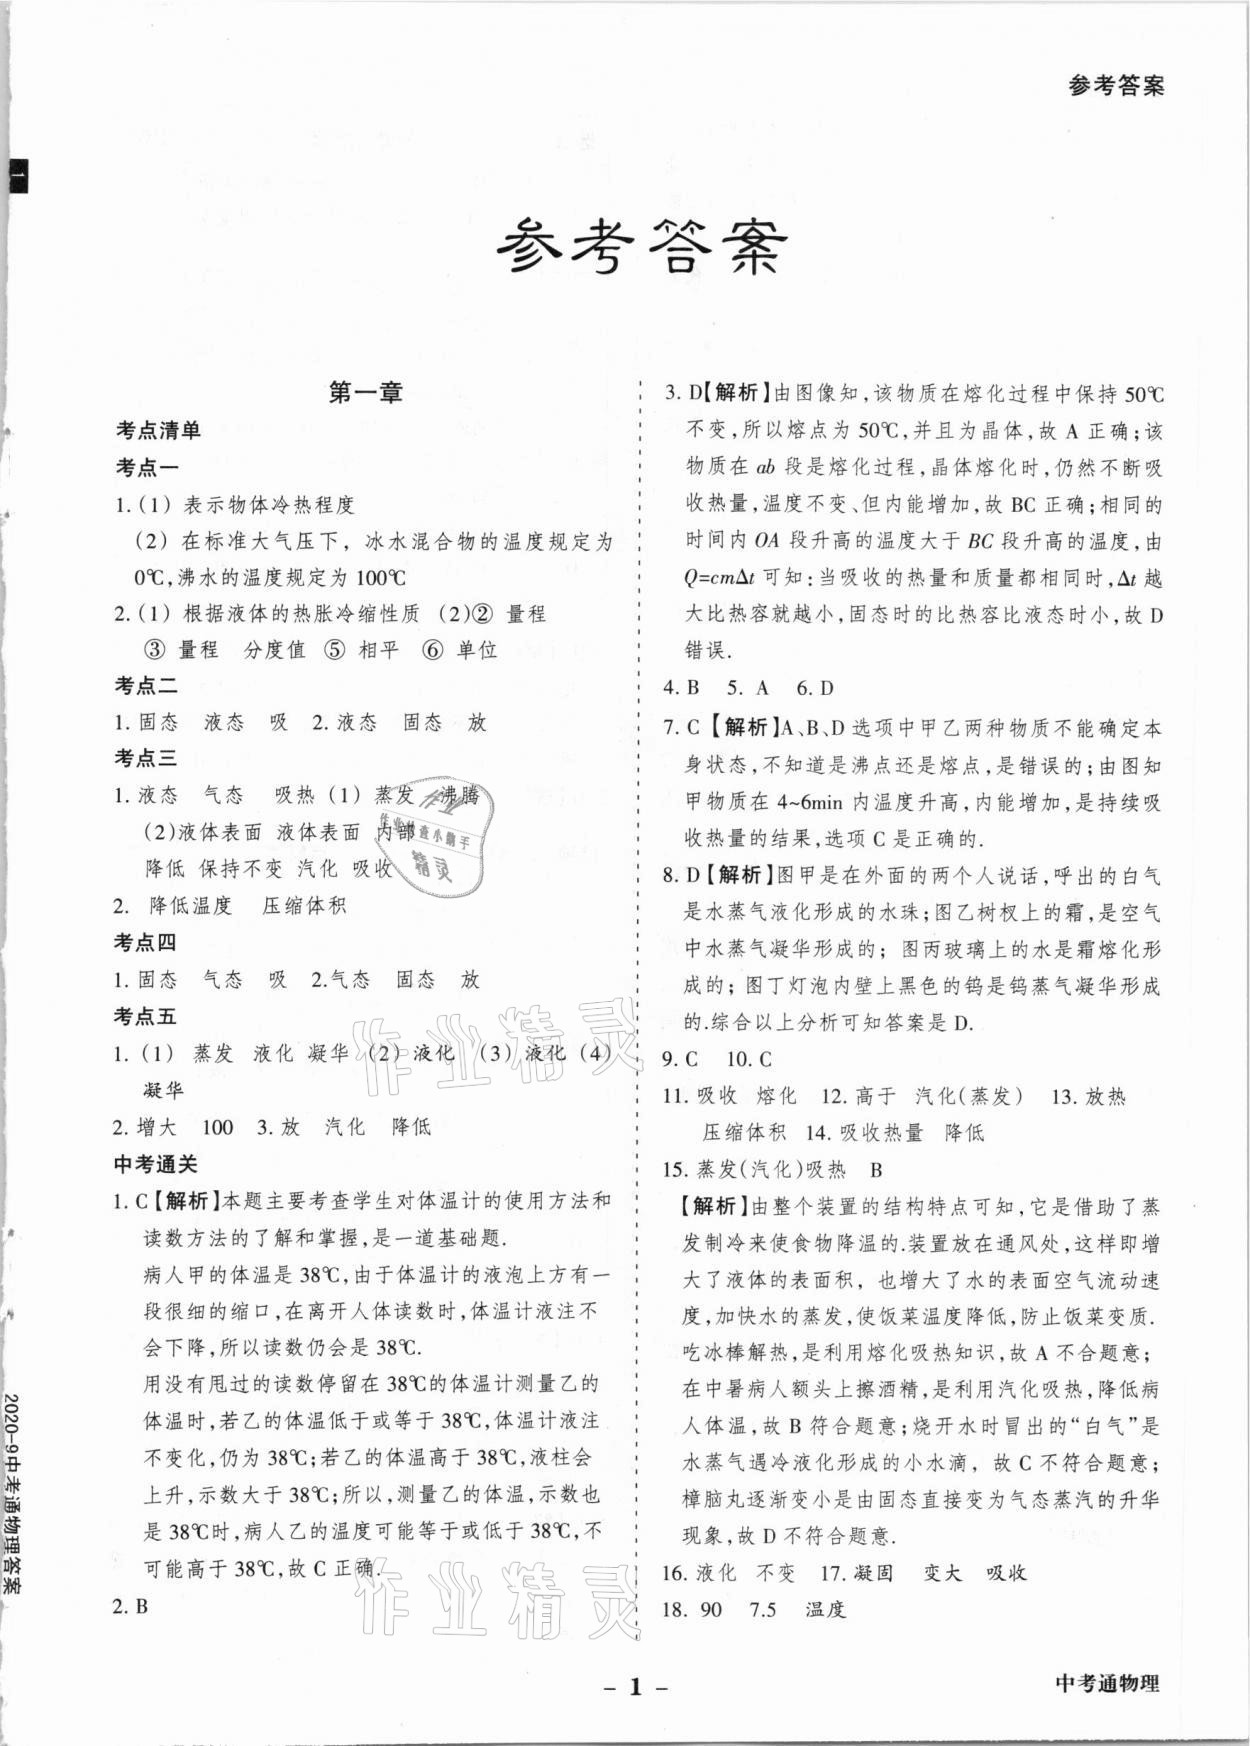 参考答案
1
参考答案
第一章
考点清单
考点一
1.(1) 表示物体冷热程度
(2) 在标准大气压下，冰水混合物的温度规定为
0℃,沸水的温度规定为100℃
2.(1) 根据液体的热胀冷缩性质 (2)② 量程
③ 量程 分度值 ⑤ 相平 ⑥ 单位
考点二
1.固态 液态 吸 2.液态 固态 放
考点三
1.液态 气态 吸热 (1) 蒸发 沸腾
(2)液体表面 液体表面 内部
降低 保持不变 汽化 吸收
2. 降低温度 压缩体积
考点四
1.固态 气态 吸 2.气态 固态 放
考点五
1.(1) 蒸发 液化 凝华 (2) 液化 (3) 液化 (4)
凝华
2.增大 100 3.放 汽化 降低
中考通关
1. C【解析】本题主要考查学生对体温计的使用方法和
读数方法的了解和掌握,是一道基础题.
病人甲的体温是38℃,由于体温计的液泡上方有一
段很细的缩口,在离开人体读数时,体温计液注不
会下降,所以读数仍会是38℃.
用没有甩过的读数停留在38℃的体温计测量乙的
体温时,若乙的体温低于或等于38℃,体温计液注
不变化,仍为38℃;若乙的体温高于38℃,液柱会
上升,示数大于38℃;所以,测量乙的体温,示数也
是38℃时,病人乙的温度可能等于或低于38℃,不
可能高于38℃,故C正确.
2. B
3. D【解析】由图像知,该物质在熔化过程中保持50℃
不变,所以熔点为50℃,并且为晶体,故A正确;该
物质在ab段是熔化过程,晶体熔化时,仍然不断吸
收热量,温度不变、但内能增加,故BC正确;相同的
时间内OA段升高的温度大于BC段升高的温度,由
Q=cmΔt可知:当吸收的热量和质量都相同时,Δt越
大比热容就越小,固态时的比热容比液态时小,故D
错误.
4. B 5. A 6. D
7. C【解析】A、B、D选项中甲乙两种物质不能确定本
身状态,不知道是沸点还是熔点,是错误的;由图知
甲物质在4~6min内温度升高,内能增加,是持续吸
收热量的结果,选项C是正确的.
8. D【解析】图甲是在外面的两个人说话,呼出的白气
是水蒸气液化形成的水珠;图乙树杈上的霜,是空气
中水蒸气凝华形成的；图丙玻璃上的水是霜熔化形
成的；图丁灯泡内壁上黑色的钨是钨蒸气凝华形成
的.综合以上分析可知答案是D.
9. C 10. C
11. 吸收 熔化 12. 高于 汽化(蒸发) 13. 放热
压缩体积 14. 吸收热量 降低
15. 蒸发(汽化)吸热 B
【解析】由整个装置的结构特点可知,它是借助了蒸
发制冷来使食物降温的.装置放在通风处,这样即增
大了液体的表面积，也增大了水的表面空气流动速
度,加快水的蒸发,使饭菜温度降低,防止饭菜变质.
吃冰棒解热,是利用熔化吸热知识,故A不合题意;
在中暑病人额头上擦酒精,是利用汽化吸热,降低病
人体温,故B符合题意;烧开水时冒出的“白气”是
水蒸气遇冷液化形成的小水滴，故C不符合题意;
樟脑丸逐渐变小是由固态直接变为气态蒸汽的升华
现象,故D不符合题意.
16. 液化 不变 17. 凝固 变大 吸收
18. 90 7.5 温度
2020-9中考通物理答案
- 1 -
中考通物理
作业
作业检查小助手
精灵
作业精灵
作业精灵